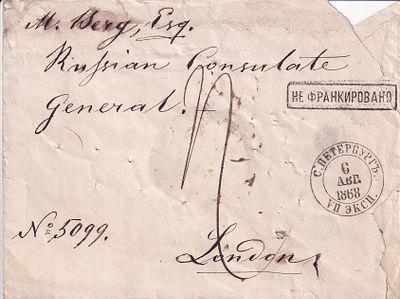 M. Berg, Esq.
Russian Consulate
General.
НЕ ФРАНКИРОВАНО
С.ПЕТЕРБУРГЪ.
6
АВГ.
1868
VII ЭКСП.
No. 5099.
London